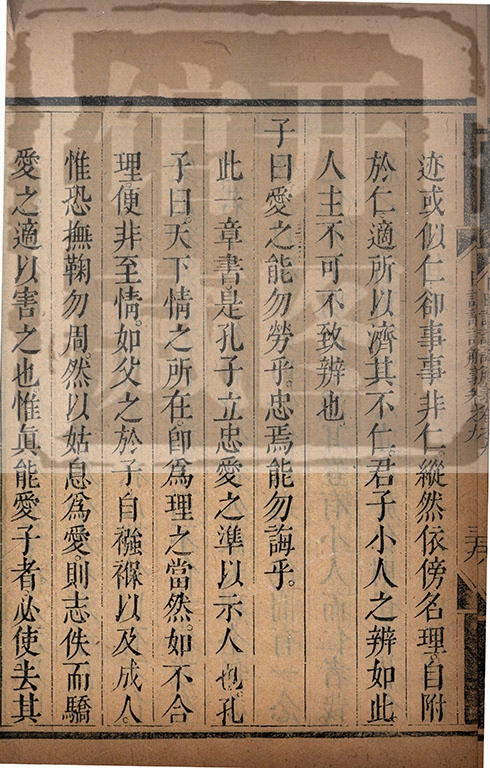 迹或似仁卻事事非仁縱然依傍名理自附
於仁適所以濟其不仁君子小人之辨如此
人主不可不致辨也
子曰愛之能勿勞乎忠焉能勿誨乎。
此一章書是孔子立忠愛之準以示人也孔
子曰天下情之所在卽爲理之當然如不合
理便非至情如父之於子自襁褓以及成人
惟恐撫鞠勿周然以姑息爲愛則志佚而驕
愛之適以害之也惟眞能愛子者必使去其